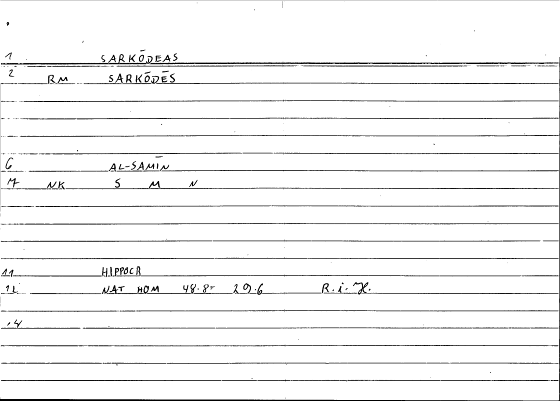 1 SARKŌDEAS
2 RM SARKŌDĒS
6 AL-SAMĪN
7 NK S M N
11 HIPPOCR
12 NAT HOM 48.8 29.6 R.i.H.
14